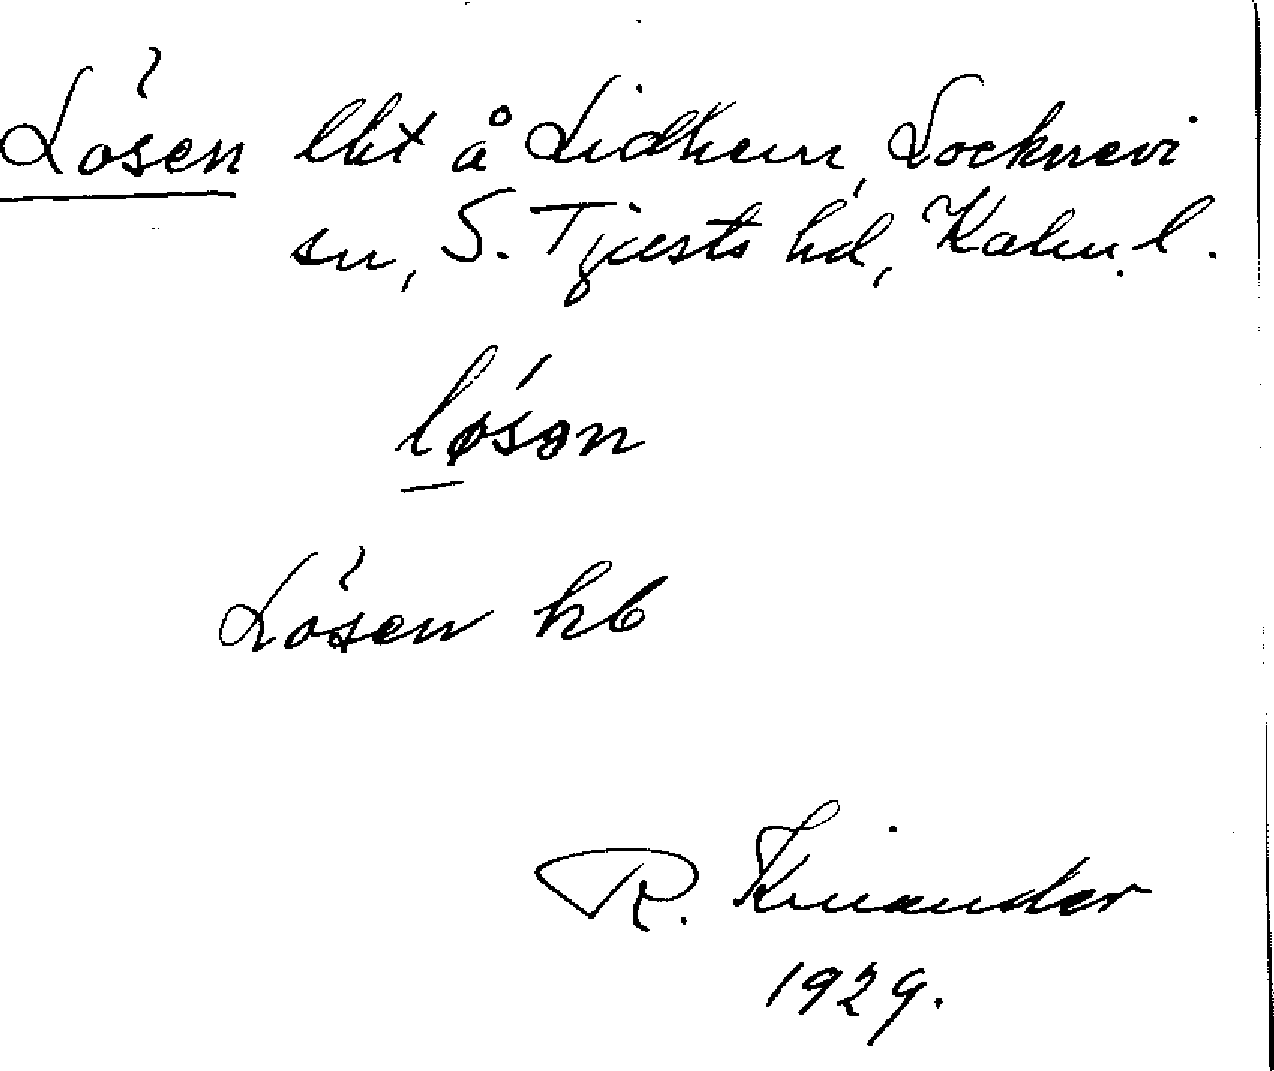 Lösen lht å Lidhem, Locknevi
sn, S. Tjusts hd, Kalm. l.
løsən
Lösen hb
R. Kinander
1929.